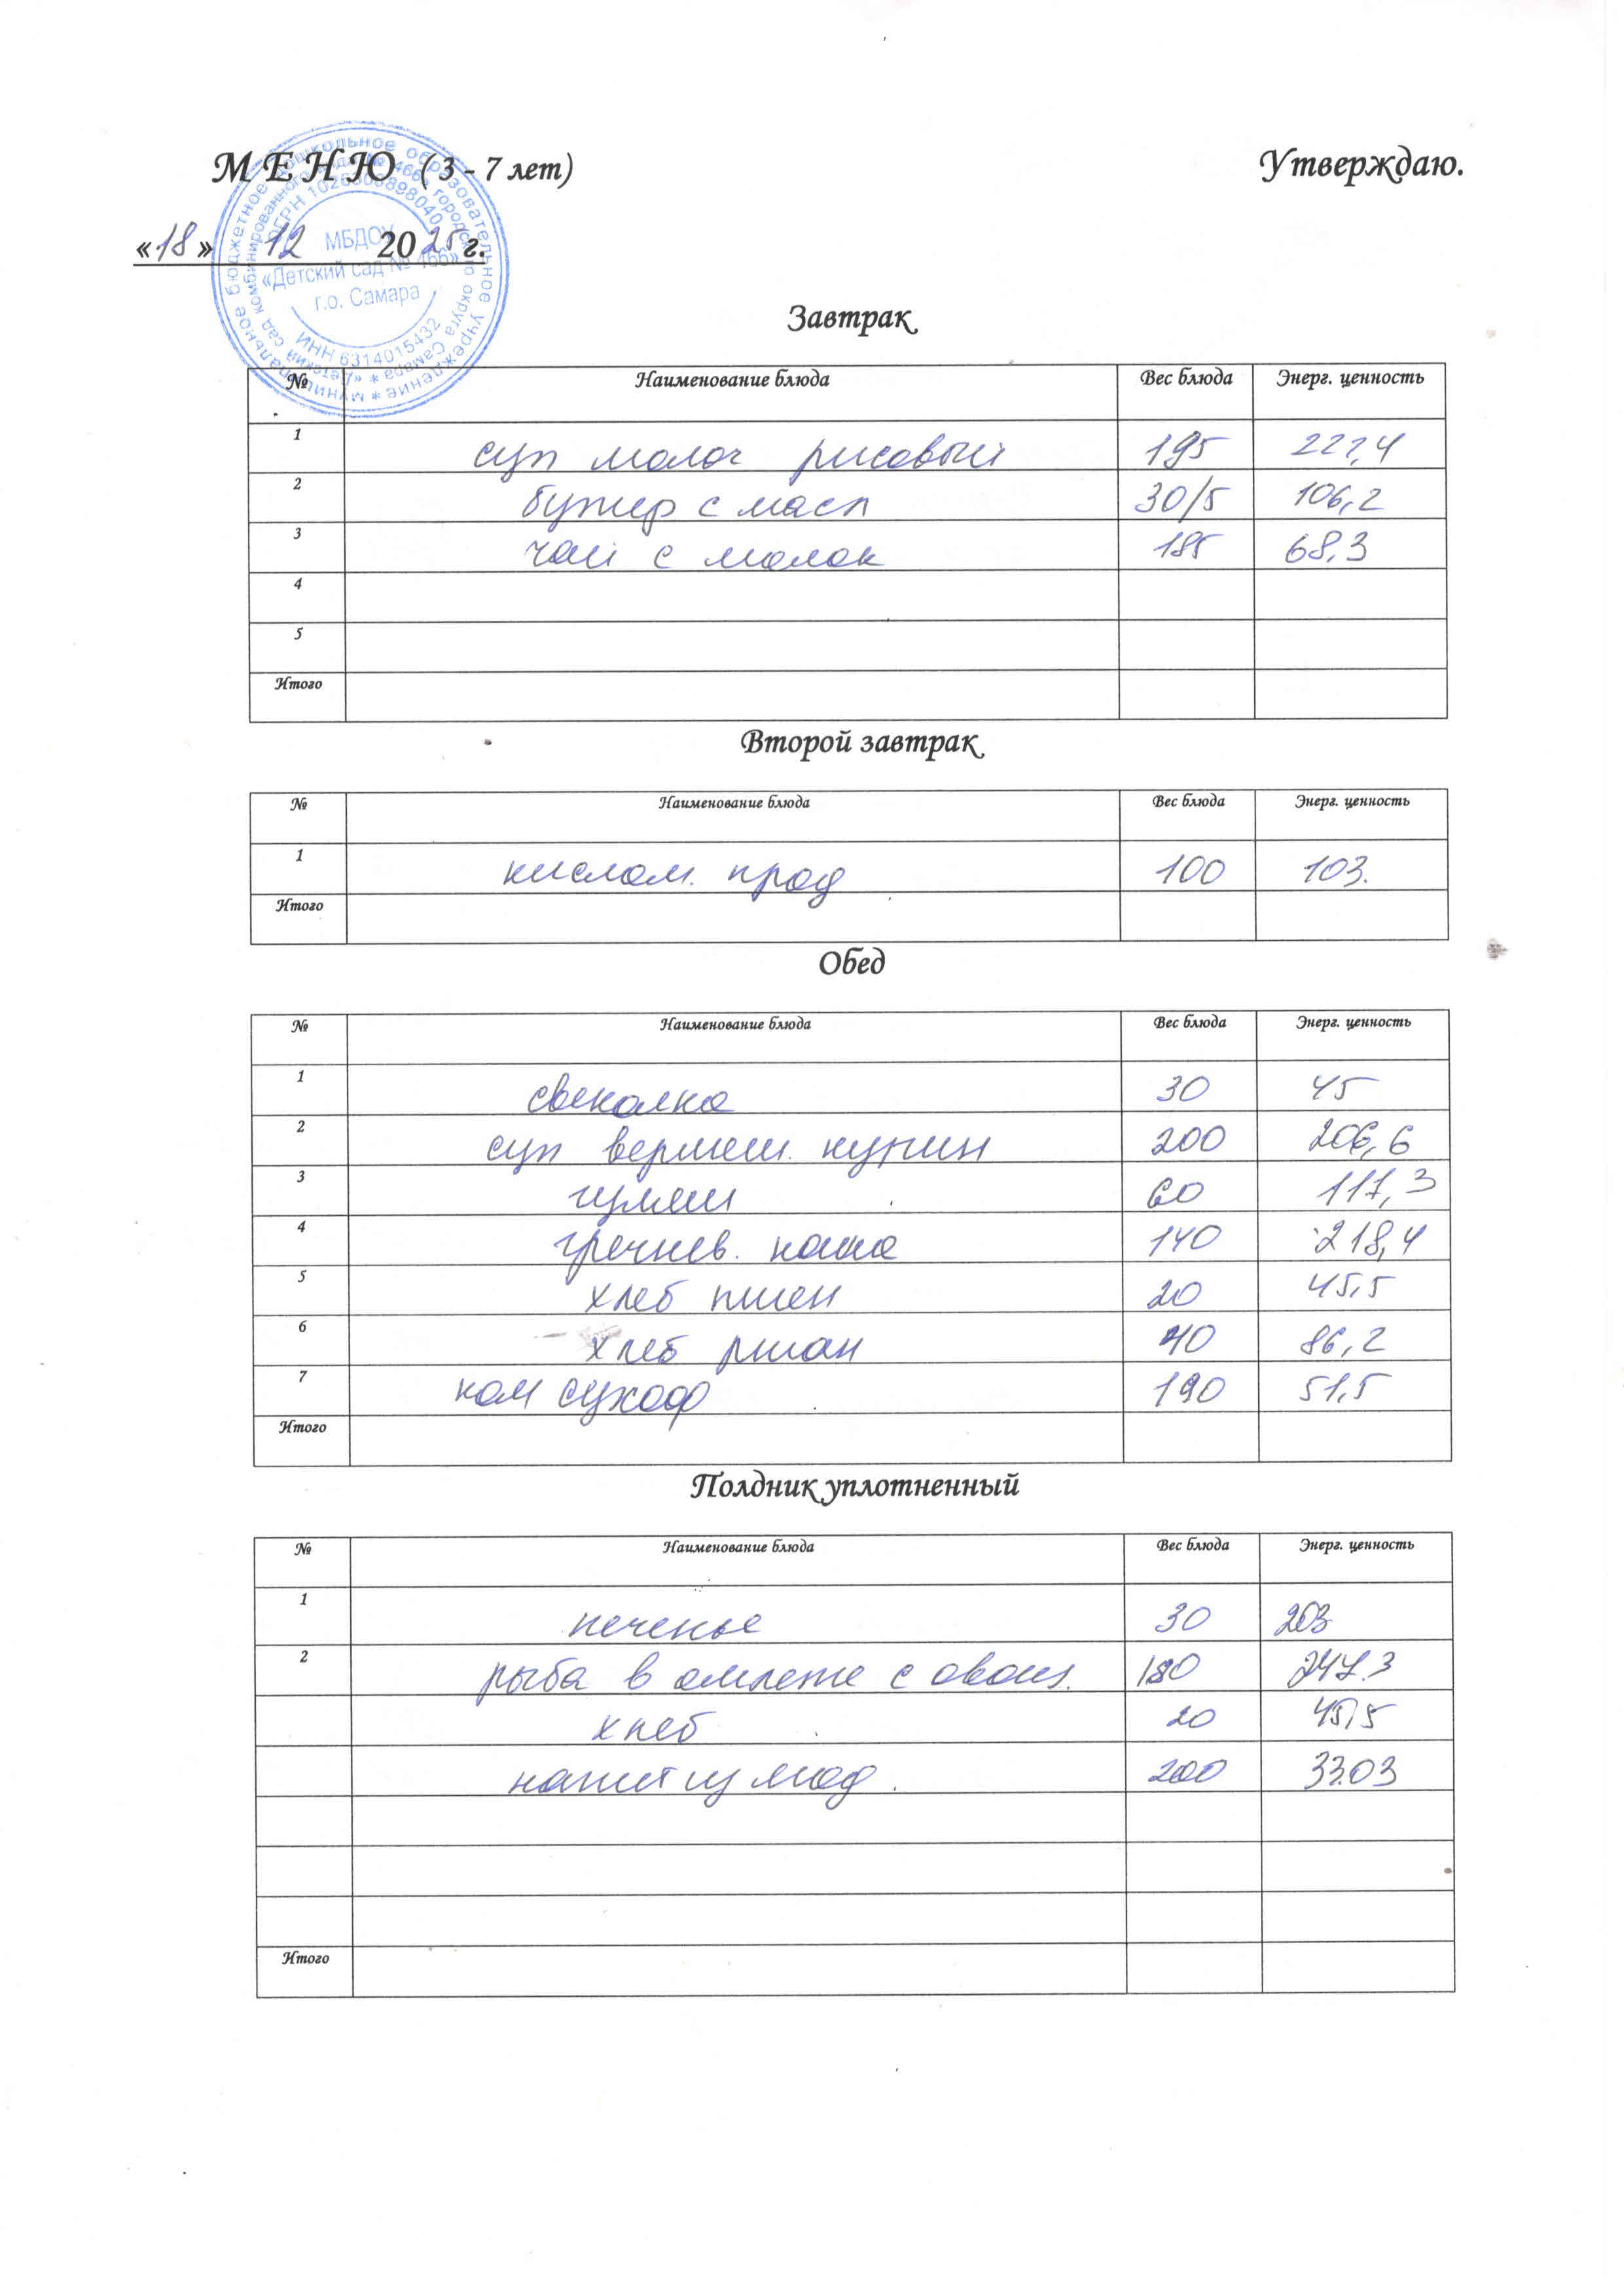 МЕНЮ (3 - 7 лет) Утверждаю.
«18» 12 2025 г.
МБДОУ
«Детский сад № 466»
г.о. Самара
ИНН 6314015432
Завтрак
№ Наименование блюда Вес блюда Энерг. ценность
1 суп молоч рисовый 195
2 бутер с масл 30/5 106,2
3 чай с молок 185 68,3
4
5
Итого
Второй завтрак
№ Наименование блюда Вес блюда Энерг. ценность
1 кислом. прод 100 103.
Итого
Обед
№ Наименование блюда Вес блюда Энерг. ценность
1 свеколка 30 45
2 суп вермиш. курин 200 206,6
3 гуляш 60 117,3
4 гречнев. каша 140 218,4
5 хлеб пшен 20 45,5
6 хлеб ржан 40 86,2
7 ком сухоф 190 51,5
Итого
Полдник уплотненный
№ Наименование блюда Вес блюда Энерг. ценность
1 печенье 30 203
2 рыба в омлете с овощ. 180 247.3
хлеб 20 45,5
напит из шод. 200
Итого